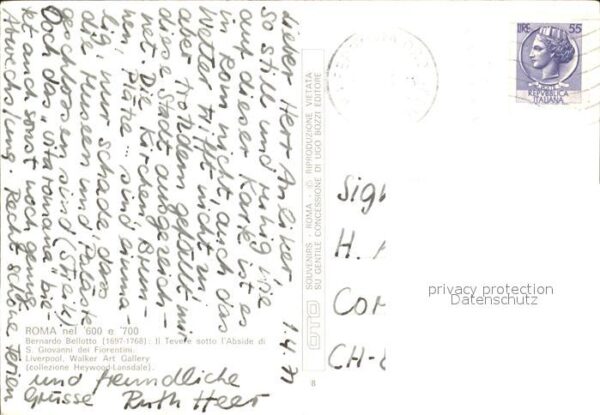 Lieber Herr Anliker, 1.4.71
So still und ruhig wie
auf dieser Karte ist es
in Rom nicht, auch das
Wetter trifft nicht zu
aber trotzdem gefällt mir
diese Stadt ausgezeich-
net. Die Kirchen, Brun-
nen, Plätze... sind einma-
lig, nur schade, dass
die Museen und Paläste
geschlossen sind (Streik).
Doch das "vita romana" bie-
tet auch sonst noch genug
Abwechslung. Recht schöne Ferien
und freundliche
Grüsse Ruth Heer
ROMA nel '600 e '700
Bernardo Bellotto (1697-1768): Il Tevere sotto l'Abside di
S. Giovanni dei Fiorentini.
Liverpool, Walker Art Gallery
(collezione Heywood-Lonsdale).
OTO
SOUVENIRS - ROMA - © RIPRODUZIONE VIETATA
SU GENTILE CONCESSIONE DI UGO BOZZI EDITORE
8
LIRE 55
REPVBBLICA
ITALIANA
Sig
H. A
Co
CH-
privacy protection
Datenschutz